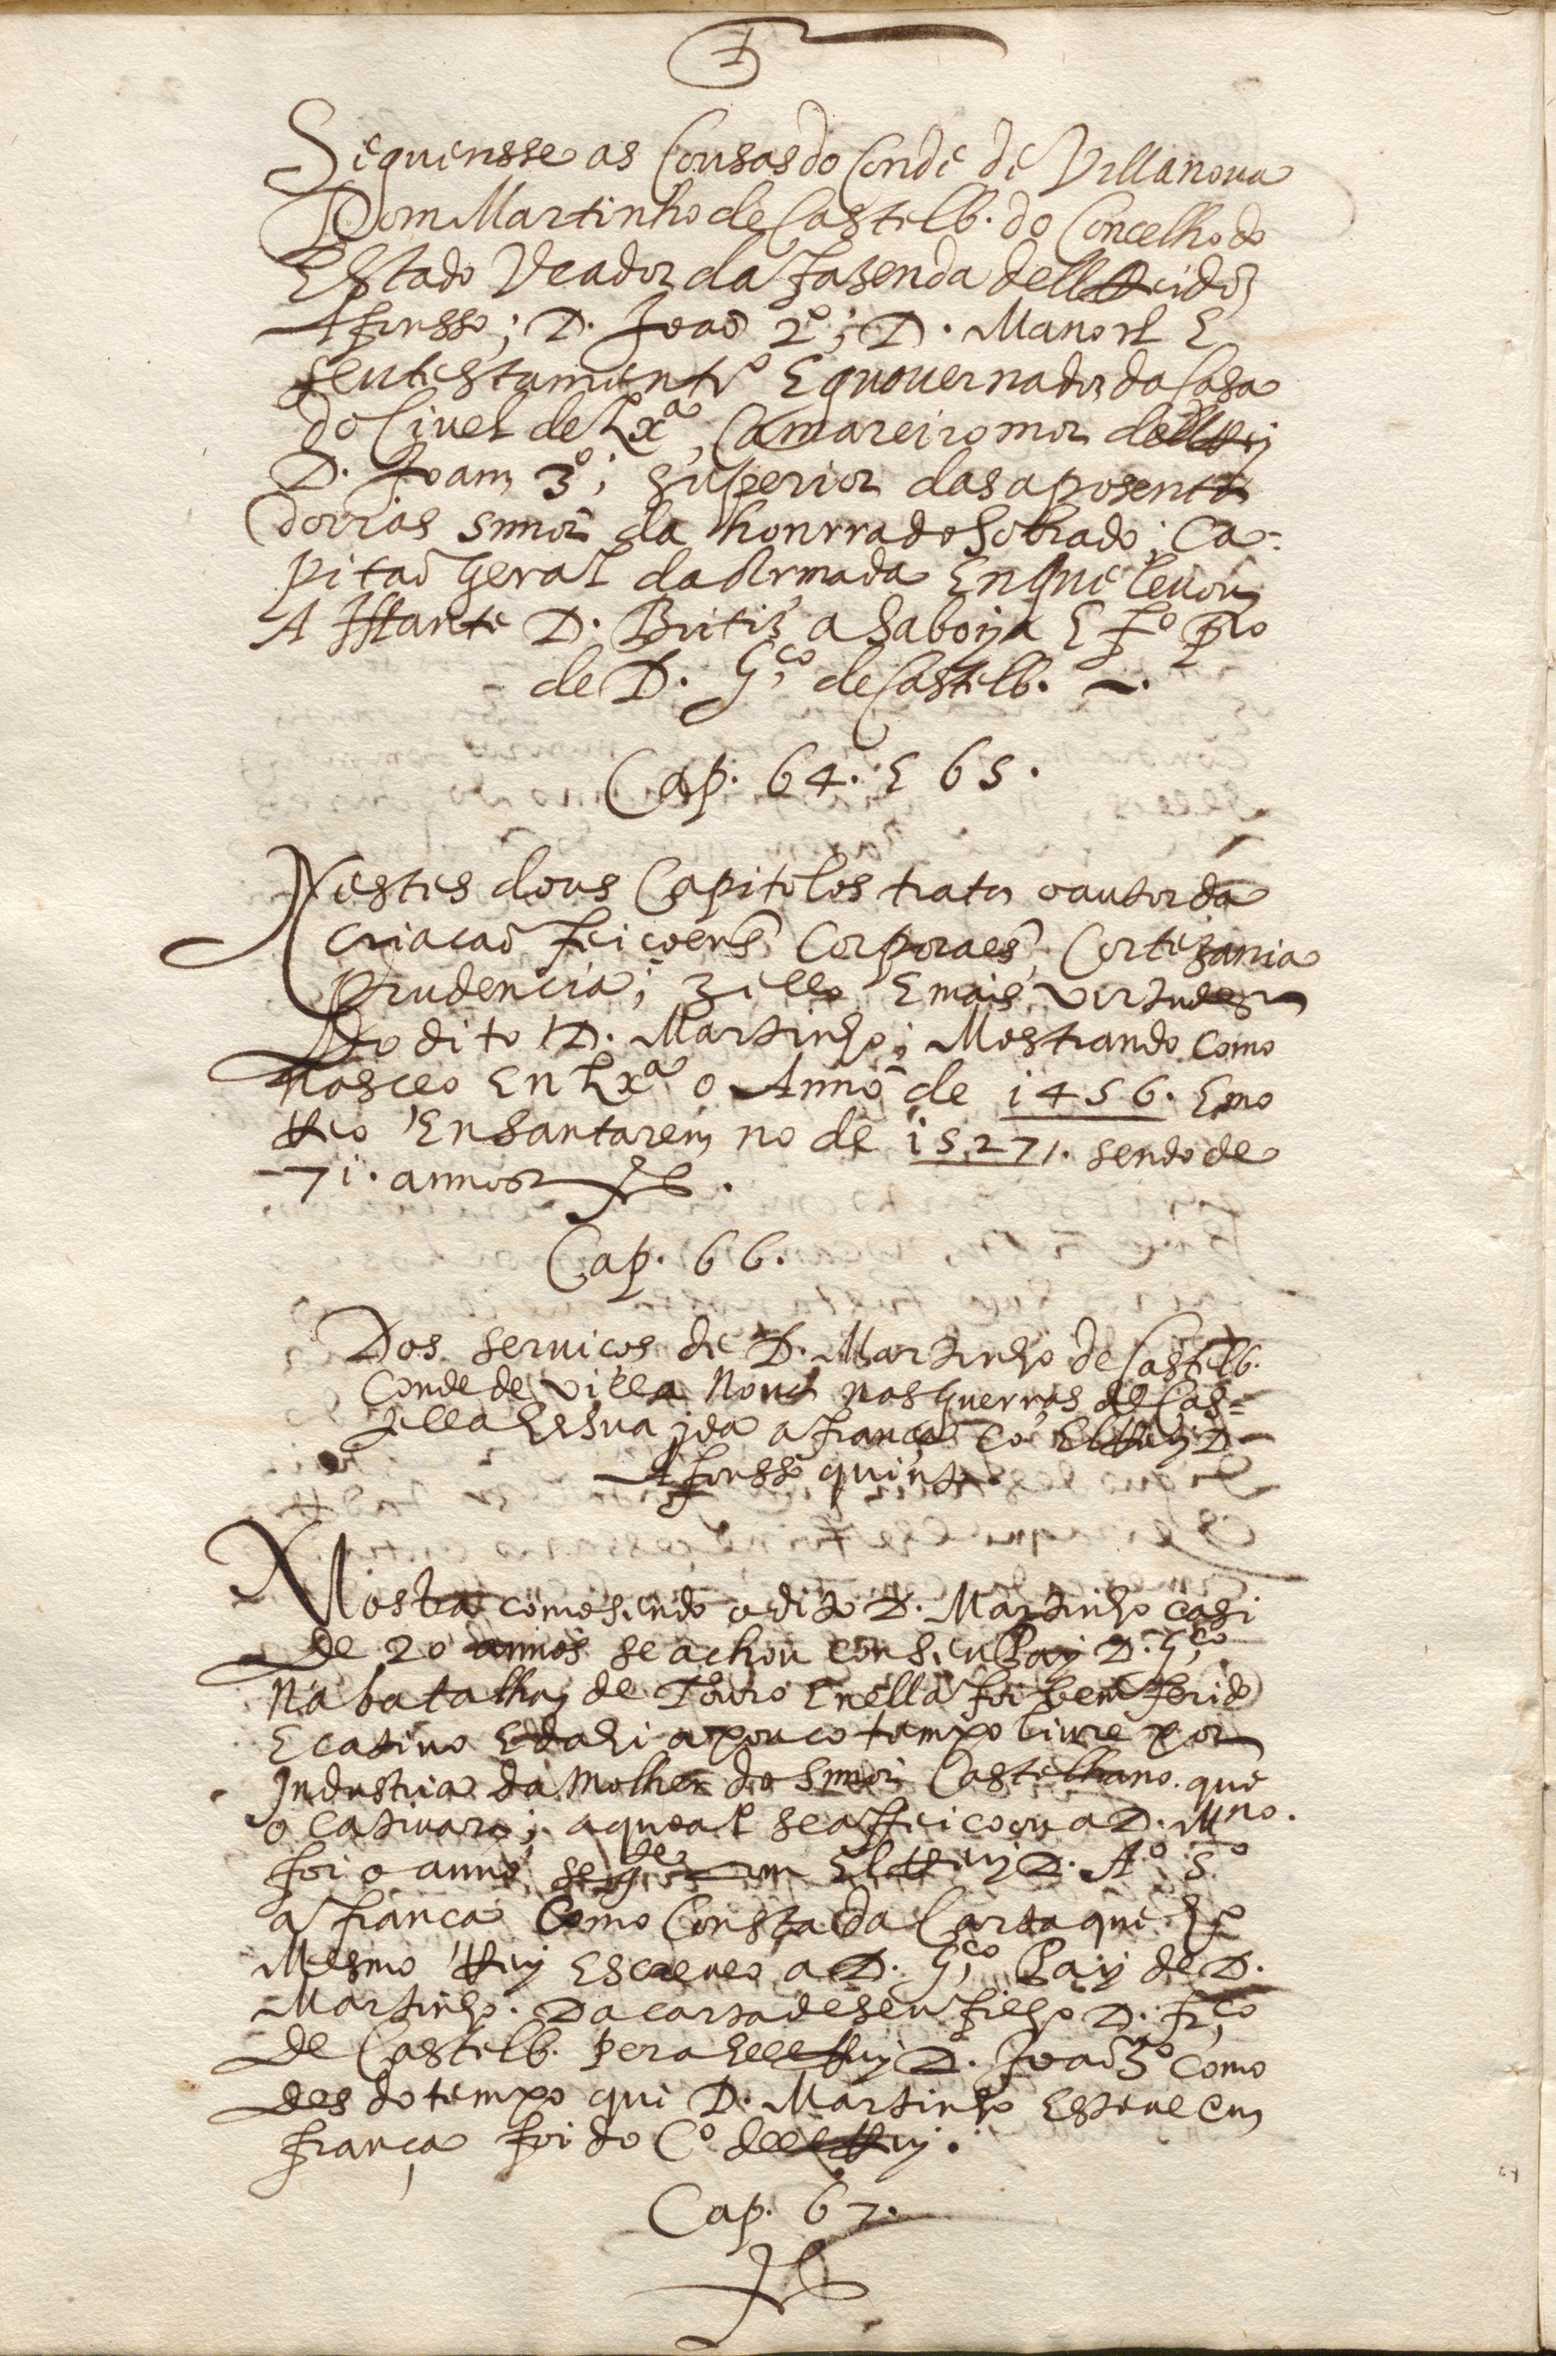 1
Seguensse as Cousas do Conde de Villa noua
Dom Martinho de Castelb. do Concelho do
Estado Veador da fazenda dell Rei dõ
Afonsso; D. Joaõ 2º; D. Manoel E
seu testamentrº E guouernador da Casa
do Ciuel de Lxª, Camareiro mor dell Rej
D. Joam 3º; superior das aposenta
dorias snnor da honrra do Sobrado; Ca=
pitaõ geral da Armada En que leuou
A Iffante D. Britiz a Saboya E fº pro
de D. Gco de Castelb. ~.
Cap. 64. E 65.
Nestes dous Capitolos trata o autor da
criacaõ feicoens Corporaes, Cortezania
prudencia; zello E mais vertudes
do dito D. Martinho; Mostrando como
nasceo En Lxª o Anno de 1456. E mo
rreo En Santarem no de 1527/. sendo de
71. annos.
Cap. 66.
Dos seruicos de D. Martinho de Castelb.
Conde de Villa Noua nas Guerras de Cas=
tella E sua jda a franca cõ El Rey D
Afonsso quinto
Mostra como sendo o dito D. Martinho casi
de 20 annos se achou con seu Pay D. Gco
Na batalha de Touro E nella foi bem ferido
E catiuo E dahi a pouco tempo liure por
Industria da molher do snnor Castelhano que
o catiuara; a qual se affeicoou a D. Mno.
foi o anno seg.de com El Rey D. Aº 5º
a franca Como Consta da Carta que o
Mesmo Rey Escreueo a D. Gco Pay de D.
Martinho. Da carta de seu filho D. frco
de Castelb. pera ell Rey D. Joaõ 3º como
des do tempo que D. Martinho Esteue em
frança foi do Cº dell Rey.
Cap. 67.